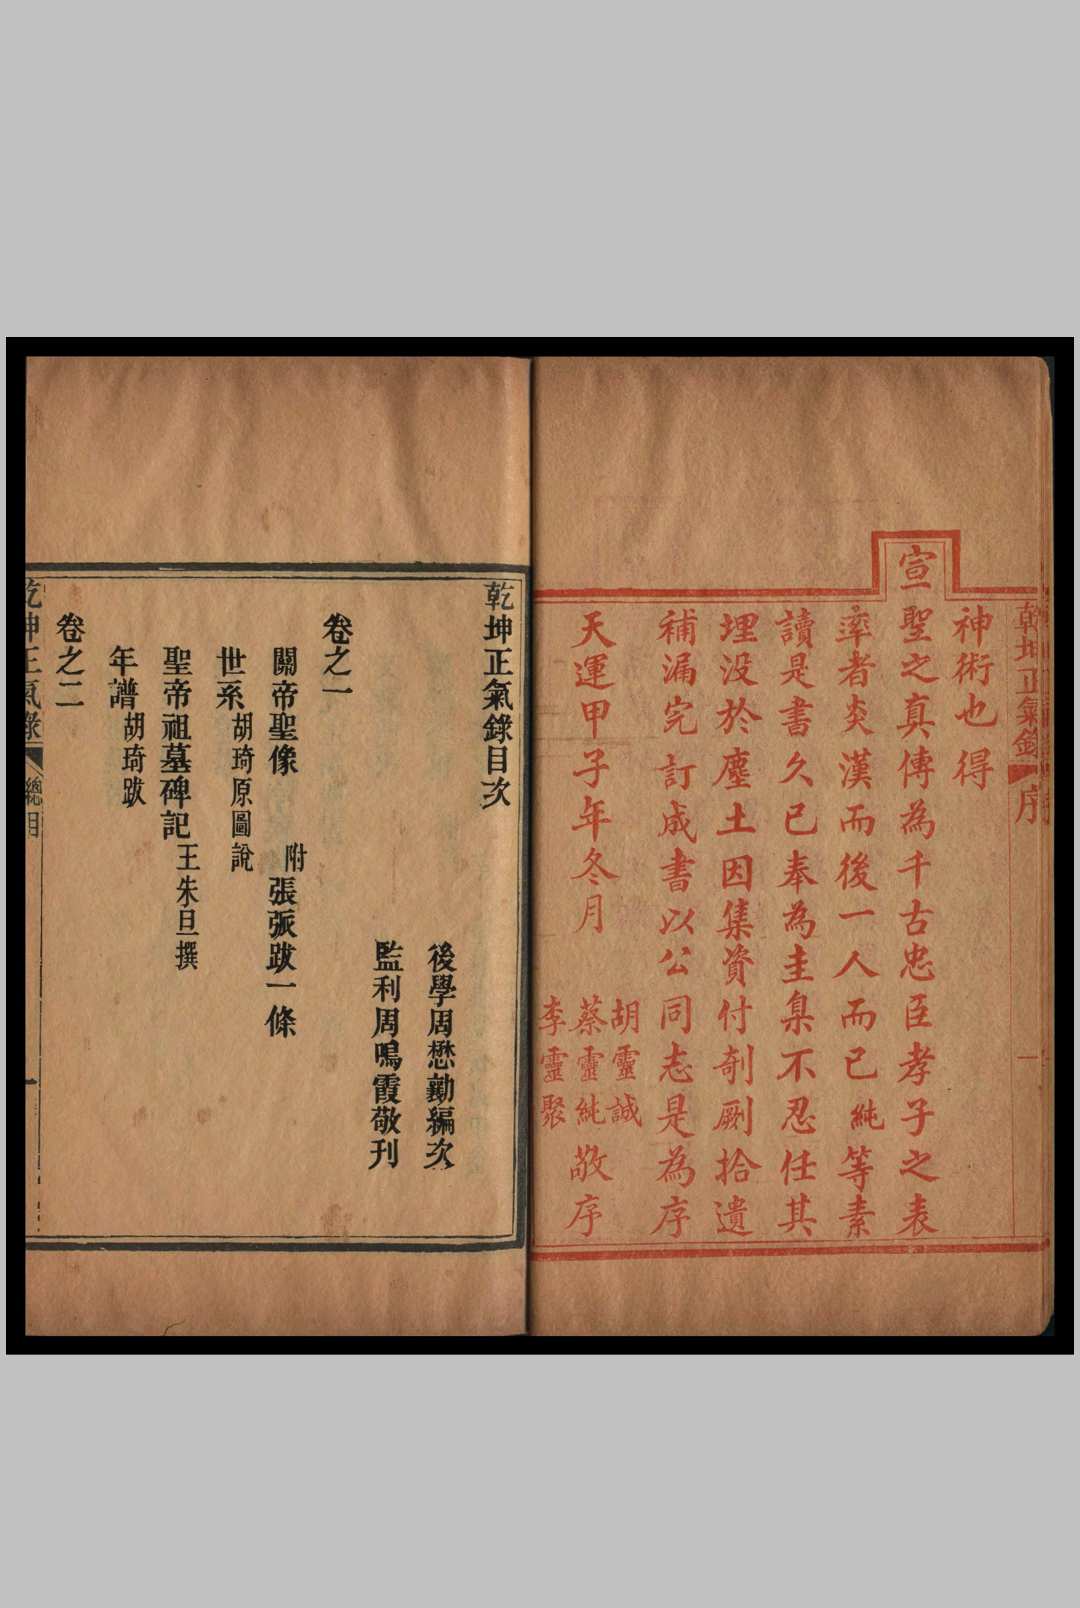 乾坤正氣錄 序 一
神術也得
宣聖之真傳為千古忠臣孝子之表
率者炎漢而後一人而已純等素
讀是書久已奉為圭臬不忍任其
埋没於塵土因集資付剞劂拾遺
補漏完訂成書以公同志是為序
天運甲子年冬月
胡靈誠
蔡靈純敬序
李靈聚
乾坤正氣錄目次
後學周懋勷編次
監利周鳴霞敬刊
卷之一
關帝聖像 附張派跋一條
世系 胡琦原圖說
聖帝祖墓碑記 王朱旦撰
年譜 胡琦跋
卷之二
乾坤正氣錄 總目 一